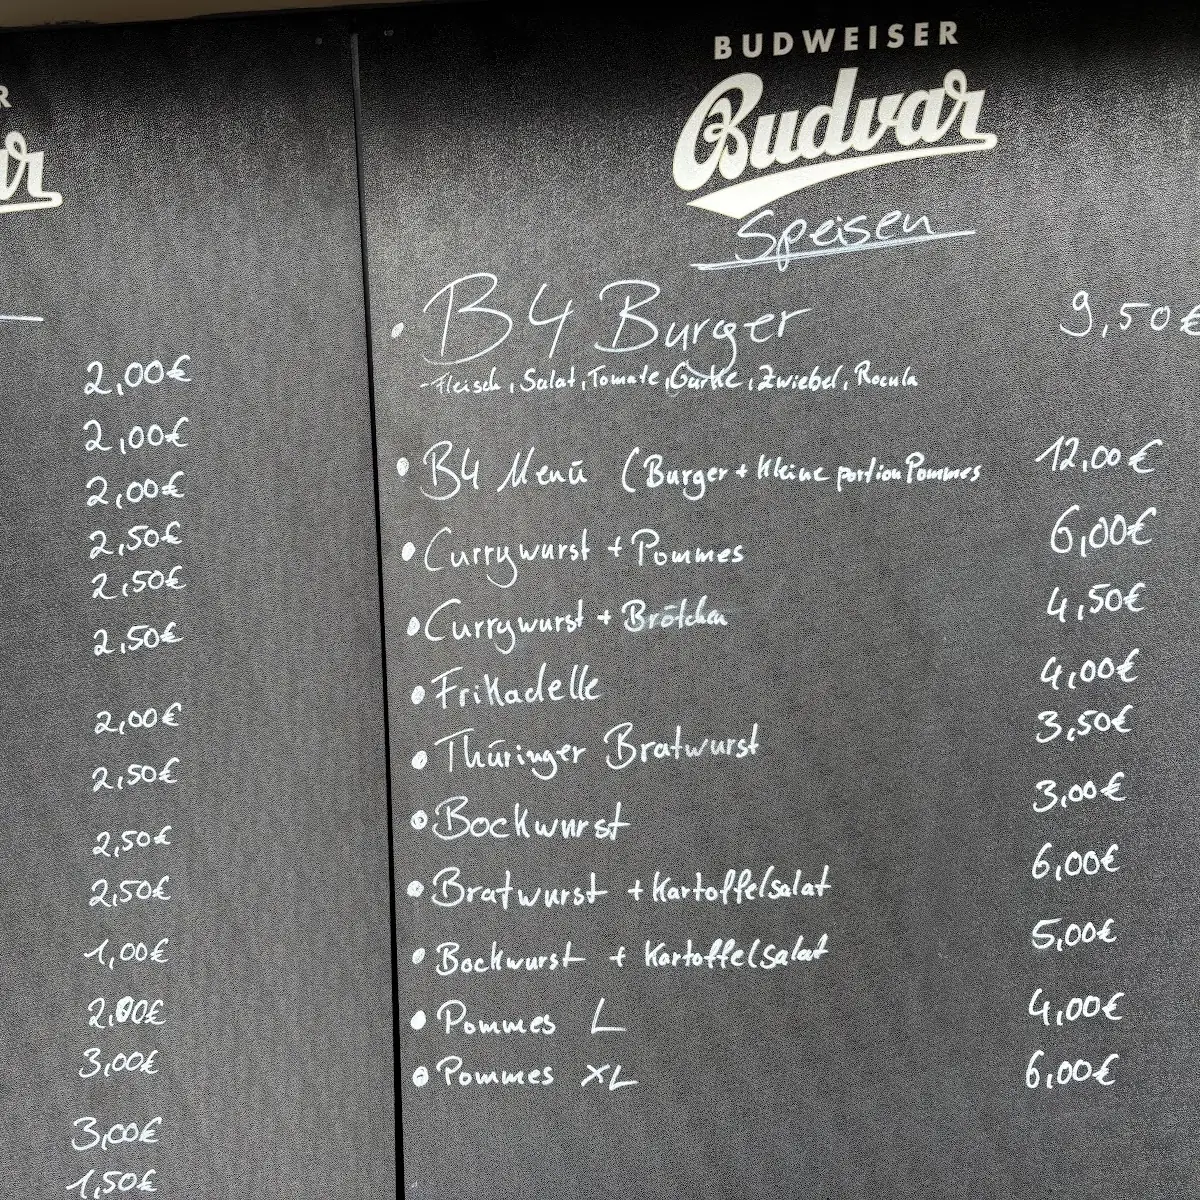 R
ar
2,00€
2,00€
2,00€
2,50€
2,50€
2,50€
2,00€
2,50€
2,50€
2,50€
1,00€
2,00€
3,00€
3,00€
1,50€
BUDWEISER
Budvar
Speisen
• B4 Burger 9,50€
- Fleisch, Salat, Tomate, Gurke, Zwiebel, Rocula
• B4 Menü (Burger + Kleine portion Pommes 12,00€
• Currywurst + Pommes 6,00€
• Currywurst + Brötchen 4,50€
• Frikadelle 4,00€
• Thüringer Bratwurst 3,50€
• Bockwurst 3,00€
• Bratwurst + Kartoffelsalat 6,00€
• Bockwurst + Kartoffelsalat 5,00€
• Pommes L 4,00€
• Pommes XL 6,00€